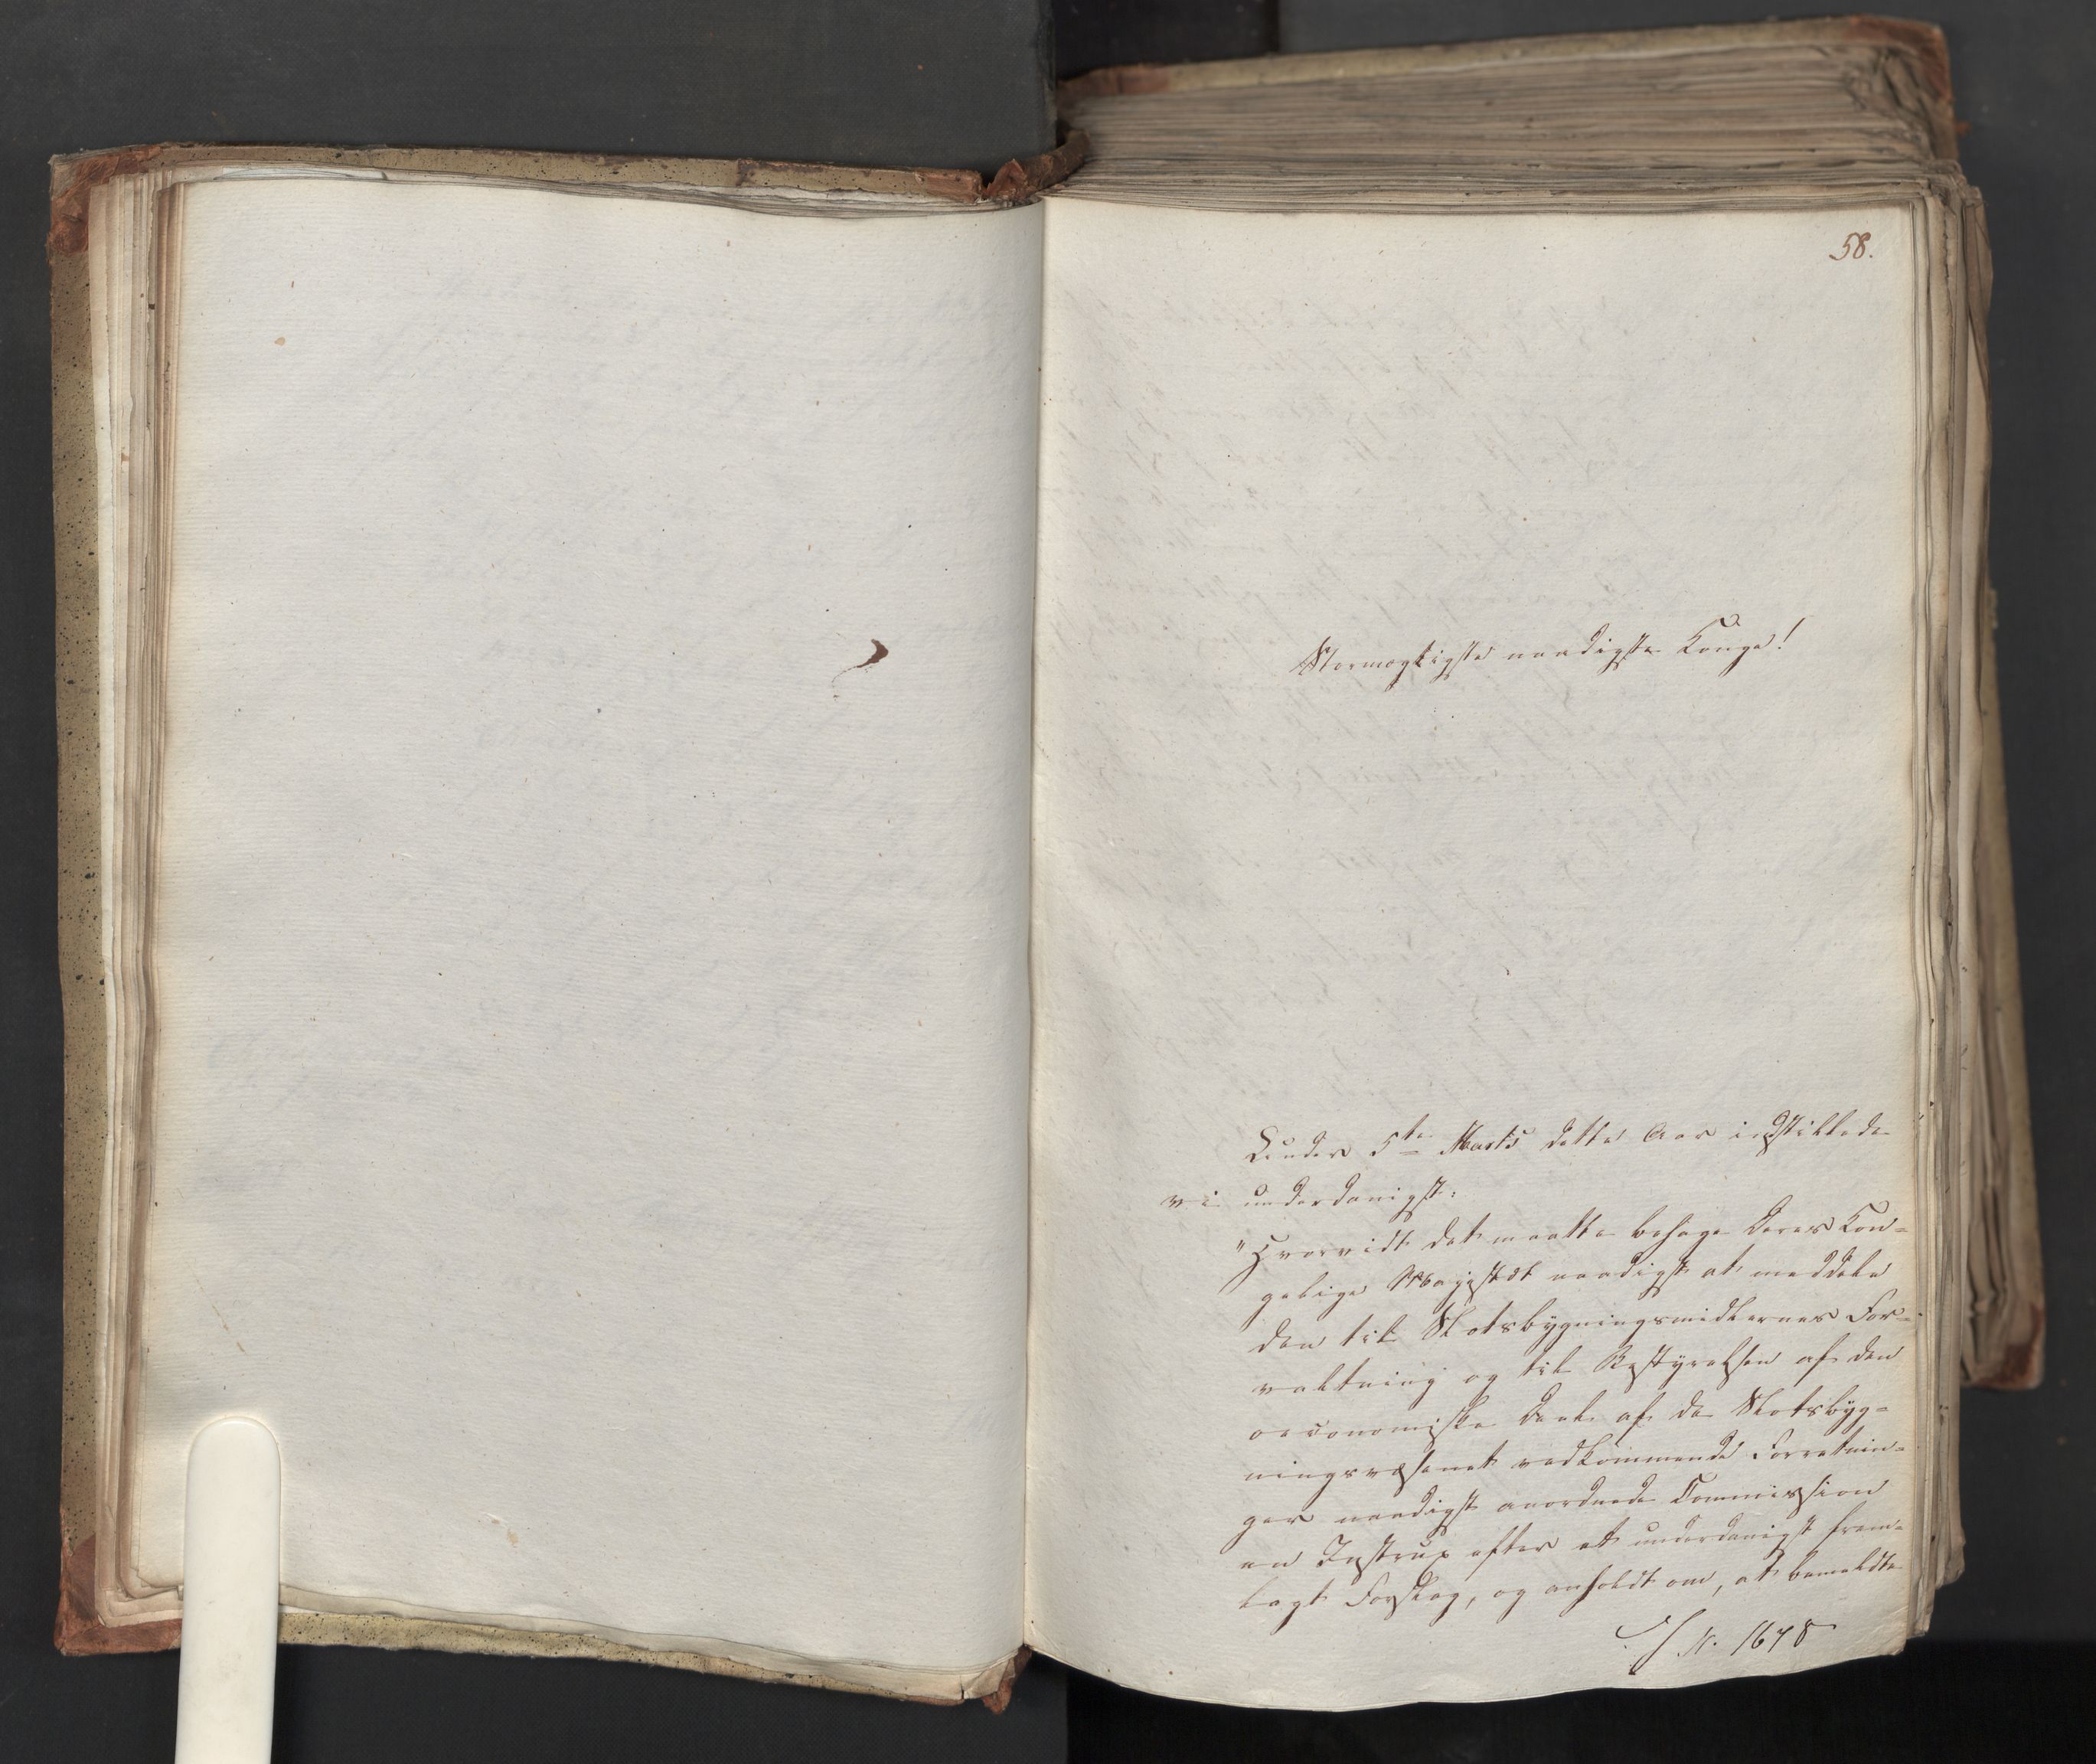 58.
Stormægtigste naadigste Konge!
Under 5te Marts dette Aar indstillede
vi underdanigst:
"Hvorvidt det maatte behage Deres Kon=
gelige Majestæt naadigst at meddele
den til Slotsbygningsmidlernes For=
valtning og til Bestyrelsen af den
oeconomiske Deel af de Slotsbyg=
ningsvæsenet vedkommende Forretnin=
ger naadigst anordnede Commission
en Instrux efter et underdanigst frem=
lagt Forslag, og anholdt om, at bemeldte
N. 1678